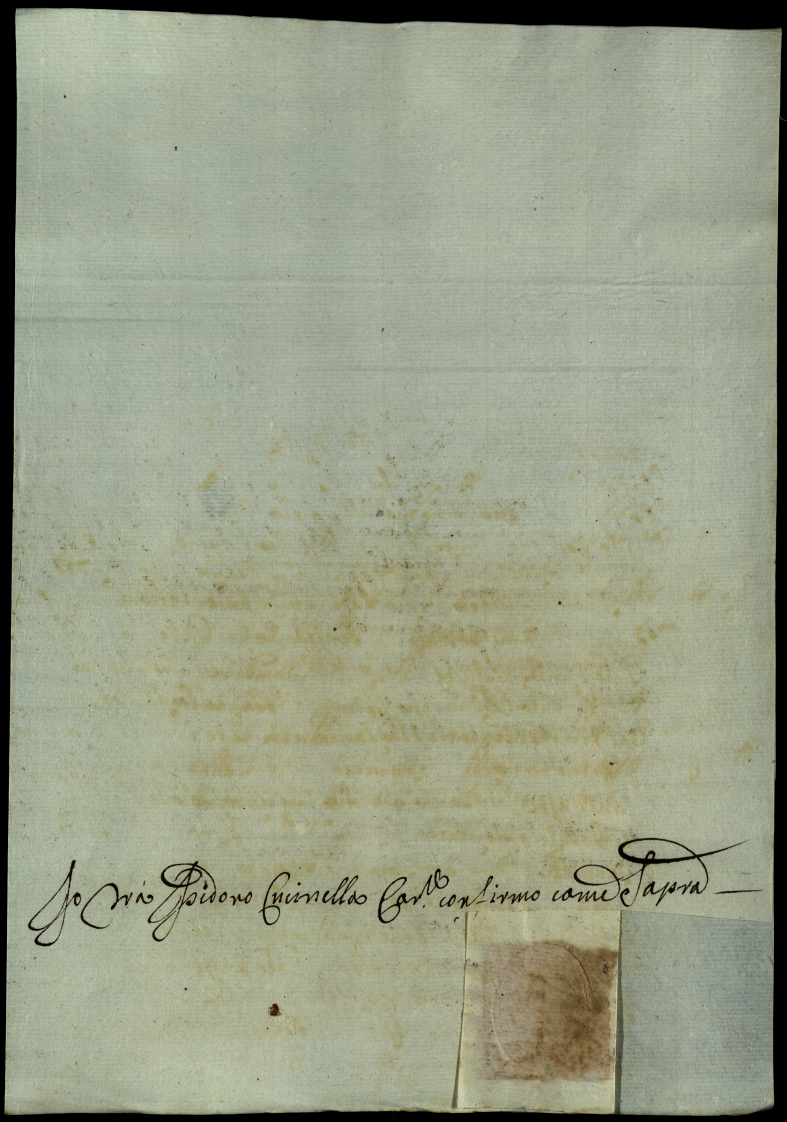 Io Fra Isidoro Cucinella Car.to confirmo come Sapra